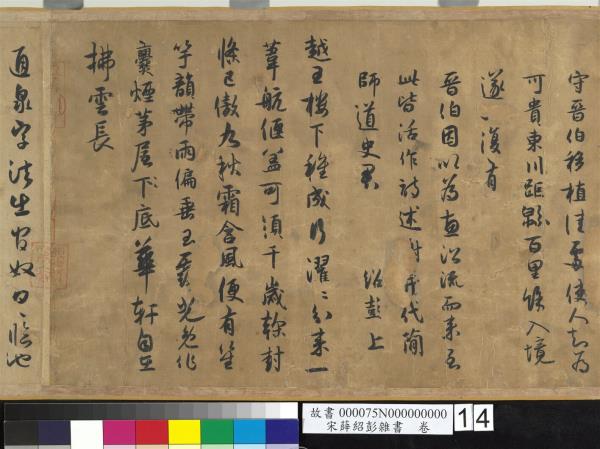 守晉伯移植佳處使人知為
可貴東川距縣百里餘入境
遂復有
晉伯因以為惠沿流而來至
此皆活作詩述謝代簡
師道史君 紹彭上
越王樓下種成行濯濯分來一
葦航偃蓋可須千歲榦封
條已傲九秋霜含風便有笙
竽韻帶雨偏垂玉露光免作
爨煙茅屋下底華軒自在
拂雲長
通泉字法生
故書 000075N000000000
宋薛紹彭雜書 卷
14